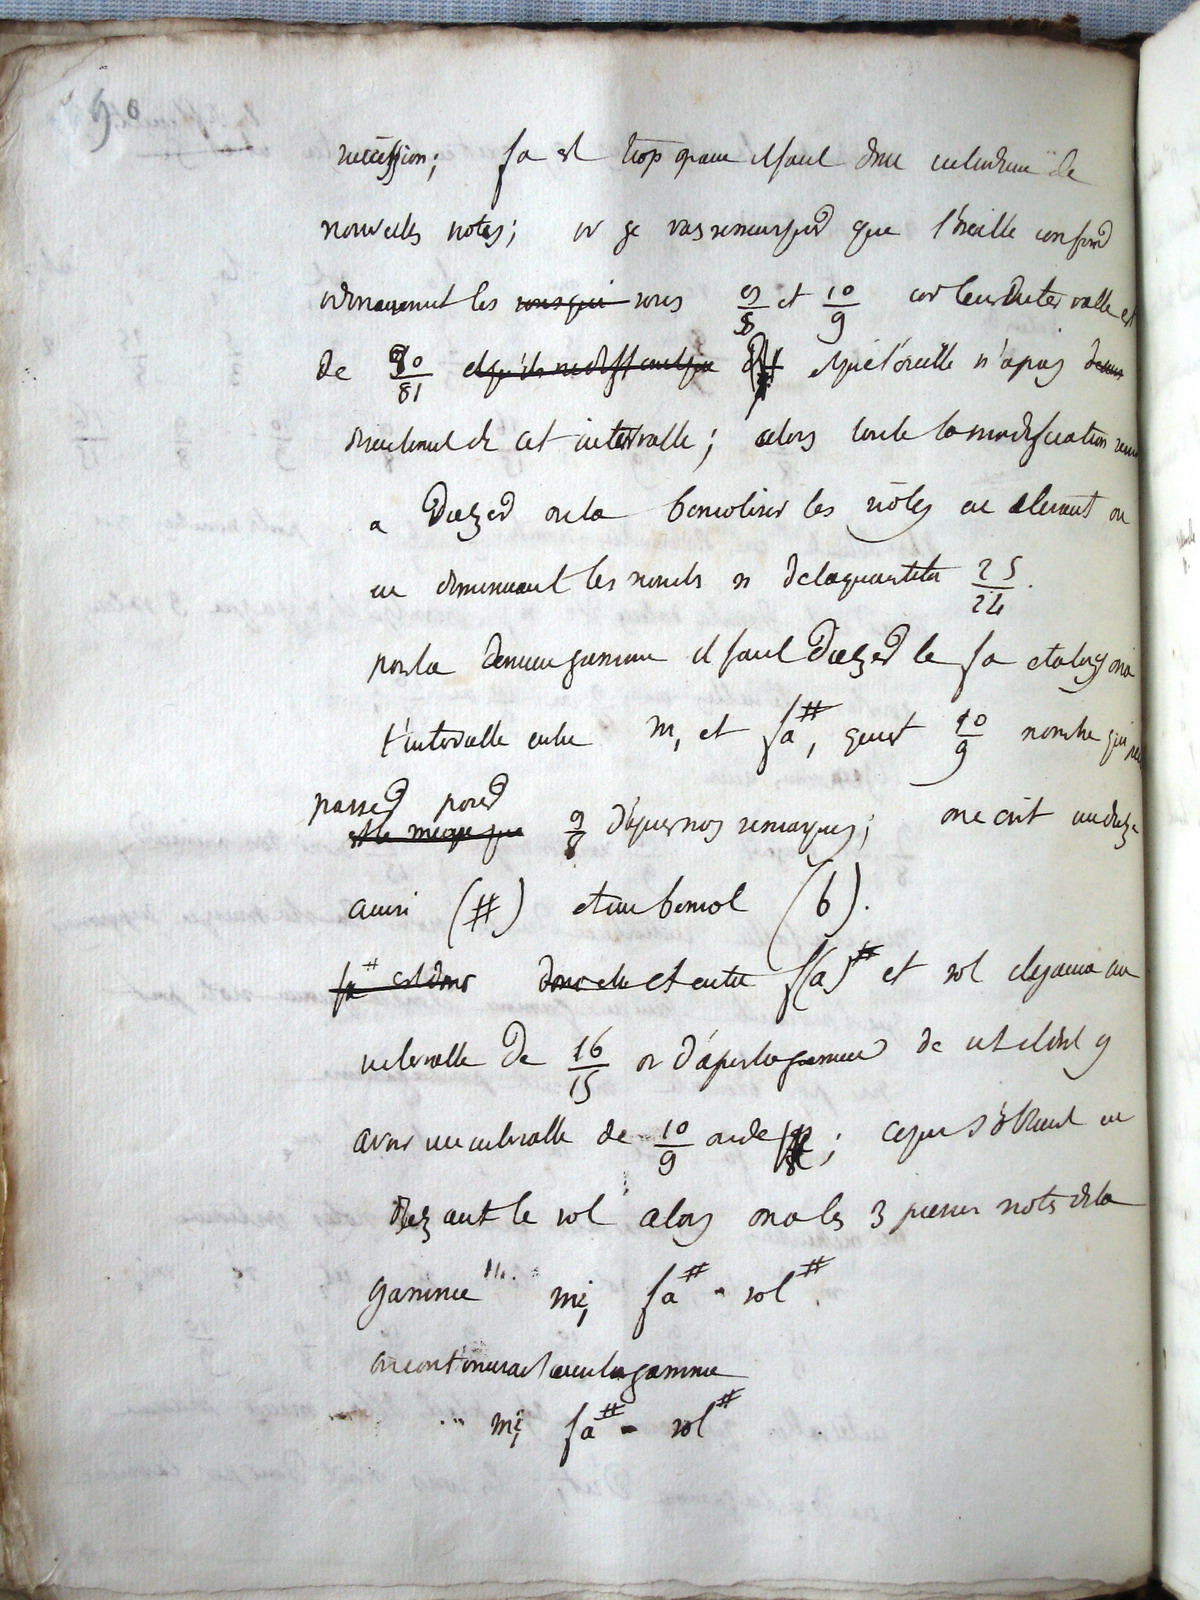 90
succession; fa est trop grave il faut donc introduire de
nouvelles notes; or je vas remarquer que l'oreille confond
ordinairement les sons qui sons 9/8 et 10/9 car leur intervalle est
de 80/81 et qu'ils ne diffèrent que et que l'oreille n'a pas
de cet intervalle; alors toute la modification
a Diezer ou la bemoliser les notes en elevant ou
en diminuant les nombres n de la quantité 25/24.
pour la gamme il faut Diezer le fa et alors on a
l'intervalle entre mi et fa#, qui est 10/9 nombre qui peut
passer pour
est le meme que 9/8 d'après nos remarques; on ecrit un dieze
ainsi (#) et un bemol (b).
fa# est donc donc elle et entre f(a)# et sol il y aura un
intervalle de 16/15 or d'après la gamme de ut il doit y
avoir un intervalle de 10/9 ou de ; ce qui s'obtient en
diezant le sol alors on a les 3 premier notes de la
gamme mi, fa# - sol#.
on continuerait ainsi la gamme
mi, fa# - sol#